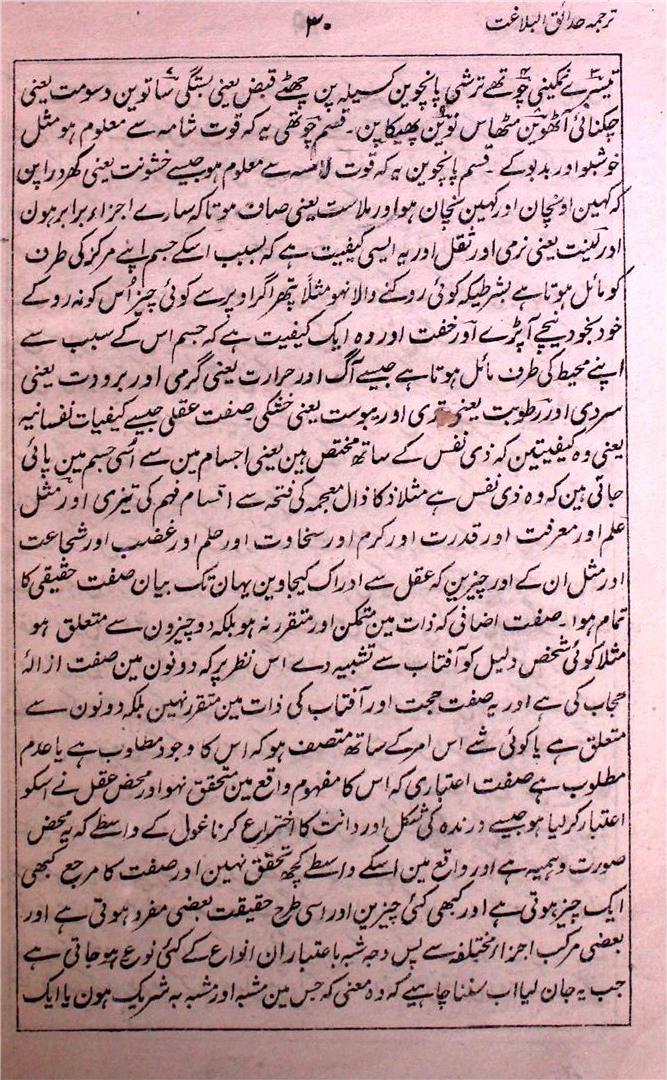 ترجمہ حدائق البلاغت
۳۰
تیسرے نمکینی چوتھے ترشی پانچوین کسیلہ پن چھٹے قبض یعنی بستگی ساتوین دسومت یعنی
چکنائی آٹھوین مٹھاس نوین پھیکاپن۔ قسم چوتھی یہ کہ قوت شامہ سے معلوم ہو مثل
خوشبو اور بدبو کے۔ قسم پانچوین یہ کہ قوت لامسہ سے معلوم ہو جیسے خشونت یعنی کھردراپن
کہ کہین اونچان اور کہین نیچان ہو اور ملاست یعنی صاف ہونا کہ سارے اجزاء برابر ہون
اور لینت یعنی نرمی اور ثقل اور یہ ایسی کیفیت ہے کہ بسبب اسکے جسم اپنے مرکز کی طرف
کو مائل ہوتا ہے بشرطیکہ کوئی روکنے والا نہو مثلاً پتھر اگر اوپر سے کوئی چیز اُس کو نہ روکے
خود بخود نیچے آپڑے اور خفت اور وہ ایک کیفیت ہے کہ جسم اس کے سبب سے
اپنے محیط کی طرف مائل ہوتا ہے جیسے آگ اور حرارت یعنی گرمی اور برودت یعنی
سردی اور رطوبت یعنی تری اور یبوست یعنی خشکی۔ صفت عقلی جیسے کیفیات نفسانیہ
یعنی وہ کیفیتین کہ ذی نفس کے ساتھ مختص ہین یعنی اجسام مین سے اُسی جسم مین پائی
جاتی ہین کہ وہ ذی نفس ہے مثلا ذکا ذال معجمہ کی فتحہ سے اقسام فہم کی تیزی اور مثل
علم اور معرفت اور قدرت اور کرم اور سخاوت اور حلم اور غضب اور شجاعت
اور مثل ان کے اور چیزین کہ عقل سے ادراک کیجاوین یہان تک بیان صفت حقیقی کا
تمام ہوا۔ صفت اضافی کہ ذات مین متمکن اور متقرر نہ ہو بلکہ دو چیزون سے متعلق ہو
مثلا کوئی شخص دلیل کو آفتاب سے تشبیہ دے اس نظر پر کہ دونون مین صفت ازالۂ
حجاب کی ہے اور یہ صفت حجت اور آفتاب کی ذات مین متقرر نہین بلکہ دونون سے
متعلق ہے یا کوئی شے اس امر کے ساتھ متصف ہو کہ اس کا وجود مطلوب ہے یا عدم
مطلوب ہے صفت اعتباری کہ اس کا مفہوم واقع مین متحقق نہو اور محض عقل نے اسکو
اعتبار کر لیا ہو جیسے درندہ کی شکل اور دانت کا اختراع کرنا غول کے واسطے کہ یہ محض
صورت وہمیہ ہے اور واقع مین اسکے واسطے کچھ تحقق نہین اور صفت کا مرجع کبھی
ایک چیز ہوتی ہے اور کبھی کئی چیزین اور اسی طرح حقیقت بعضی مفرد ہوتی ہے اور
بعضی مرکب اجزاء مختلفہ سے پس وجہ شبہ باعتبار ان انواع کے کئی نوع ہو جاتی ہے
جب یہ جان لیا اب سننا چاہیے کہ وہ معنی کہ جس مین مشبہ اور مشبہ بہ شریک ہون یا ایک